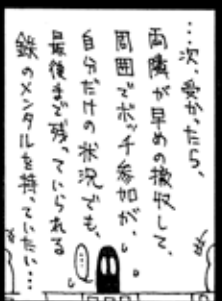 …次、受かったら、
両隣が早めの撤収して、
周囲でボッチ参加が、
自分だけの状況でも、
最後まで残っていられる
鉄のメンタルを持っていたい…
…